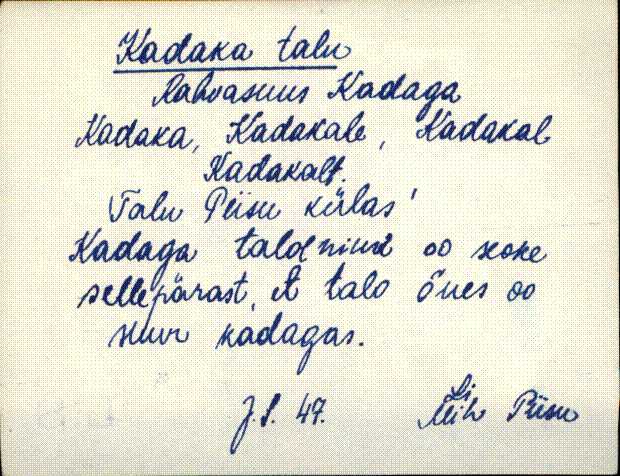 Kadaka talu
Rahvasuus Kadaga
Kadaka, Kadakale, Kadakal
Kadakalt.
Talu Piisu külas
Kadaga talo nimi oo
sellepärast, et talo õues oo
suur kadagas.
J. S. 47.
Piisu